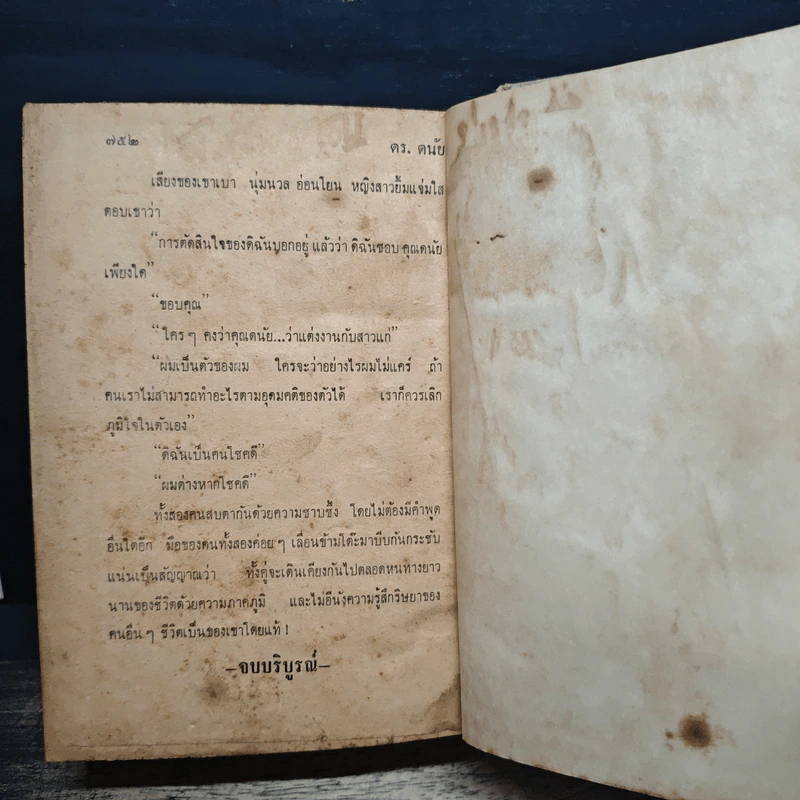 ๗๕๒
ดร. ดนัย
เสียงของเขาเบา นุ่มนวล อ่อนโยน หญิงสาวยิ้มแจ่มใส
ตอบเขาว่า
“การตัดสินใจของดิฉันบอกอยู่ แล้วว่า ดิฉันชอบ คุณดนัย
เพียงใด”
“ขอบคุณ”
“ใคร ๆ คงว่าคุณดนัย...ว่าแต่งงานกับสาวแก่”
“ผมเป็นตัวของผม ใครจะว่าอย่างไรผมไม่แคร์ ถ้า
คนเราไม่สามารถทำอะไรตามอุดมคติของตัวได้ เราก็ควรเลิก
ภูมิใจในตัวเอง”
“ดิฉันเป็นคนโชคดี”
“ผมต่างหากโชคดี”
ทั้งสองคนสบตากันด้วยความซาบซึ้ง โดยไม่ต้องมีคำพูด
อื่นใดอีก มือของคนทั้งสองค่อย ๆ เลื่อนข้ามโต๊ะมาบีบกันกระชับ
แน่นเป็นสัญญาณว่า ทั้งคู่จะเดินเคียงกันไปตลอดหนทางยาว
นานของชีวิตด้วยความภาคภูมิ และไม่อีนังความรู้สึกริษยาของ
คนอื่น ๆ ชีวิตเป็นของเขาโดยแท้ !
–จบบริบูรณ์–